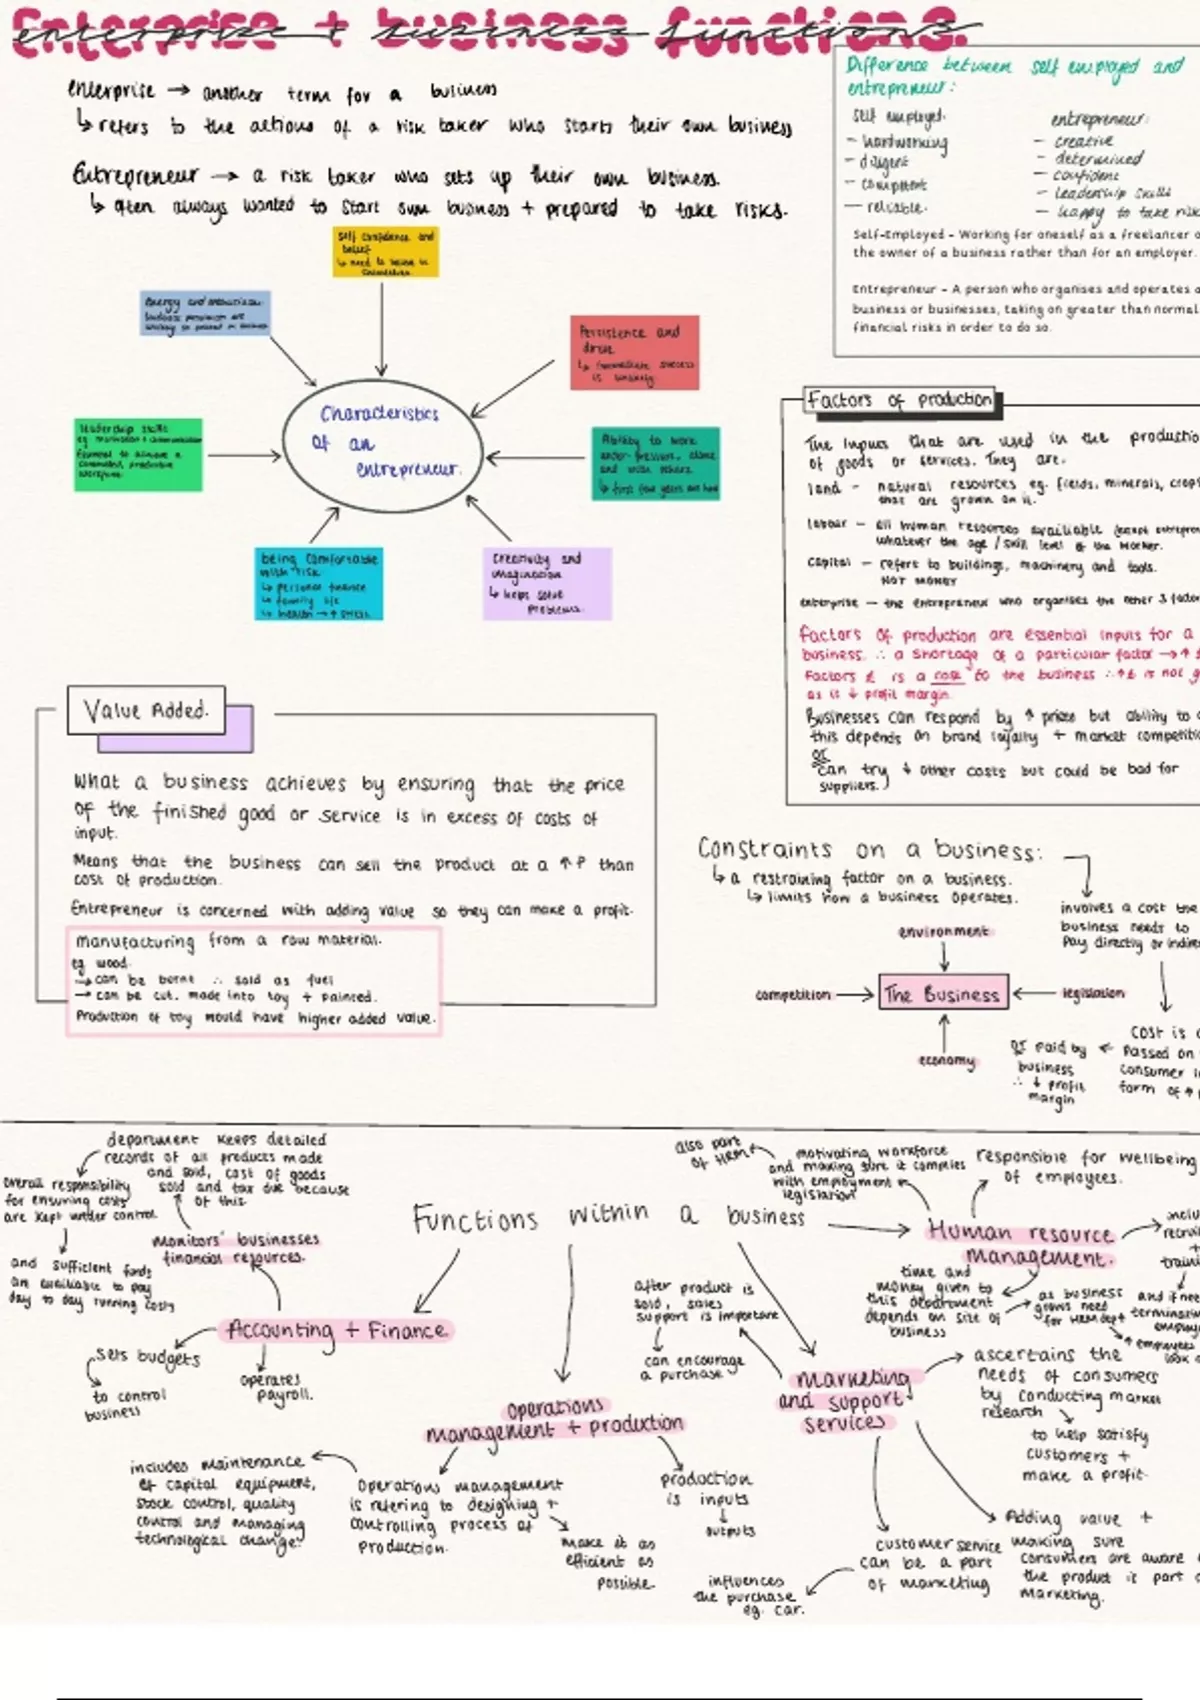 enterprise + business functions.
enterprise → another term for a business
↳ refers to the actions of a risk taker who starts their own business
Entrepreneur → a risk taker who sets up their own business.
↳ often always wanted to start own business + prepared to take risks.
Difference between self employed and
entrepreneur:
self employed:
- hardworking
- diligent
- competent
- reliable.
entrepreneur:
- creative
- determined
- confident
- leadership skills
- happy to take risk
Self-Employed - Working for oneself as a freelancer o
the owner of a business rather than for an employer.
Entrepreneur - A person who organises and operates a
business or businesses, taking on greater than normal
financial risks in order to do so.
Self confidence and
belief
↳ need to believe in
themselves.
Energy and
Persistence and
drive
↳ immediate success
is unlikely
leadership skills
eg motivation + communication
Characteristics
of an
entrepreneur.
Ability to work
under pressure, alone
and with others
↳ first few years are hard
being comfortable
with risk
↳ personal finance
↳ family life
↳ health → ↑ stress.
Creativity and
imagination
↳ helps solve
problems.
Factors of production
The inputs that are used in the productio
of goods or services. They are:
land - natural resources eg. fields, minerals, crop
that are grown on it.
labour - all human resources availiable (except entrepren
whatever the age/skill level of the worker.
Capital - refers to buildings, machinery and tools.
NOT MONEY
enterprise - the entrepreneur who organises the other 3 factor
factors of production are essential inputs for a
business. ∴ a shortage of a particular factor → ↑ £
Factors £ is a cost to the business ∴ ↑ £ is not g
as it ↓ profit margin.
Businesses can respond by ↑ prices but ability to
this depends on brand loyalty + market competitio
or
can try ↓ other costs but could be bad for
suppliers.
Value Added.
What a business achieves by ensuring that the price
of the finished good or service is in excess of costs of
input.
Means that the business can sell the product at a ↑ P than
cost of production.
Entrepreneur is concerned with adding value so they can make a profit.
manufacturing from a raw material.
eg wood.
→ can be burnt ∴ sold as fuel
→ can be cut, made into toy + painted.
Production of toy would have higher added value.
Constraints on a business:
↳ a restraining factor on a business.
↳ limits how a business operates.
involves a cost the
business needs to
pay directly or indire
environment
competition
The Business
legislation
economy
cost is
passed on
consumer in
form of ↑
or paid by
business
∴ ↓ profit
margin
Functions within a business
department keeps detailed
records of all products made
and sold, cost of goods
sold and tax due because
of this.
overall responsibility
for ensuring costs
are kept under control.
and sufficient funds
are availiable to pay
day to day running costs
monitors' businesses
financial resources.
Accounting + Finance
sets budgets
to control
business
operates
payroll.
also part
of HRM
motivating workforce
and making sure it complies
with employment
legislation
responsible for wellbeing
of employees.
Human resource
management.
inclu
recrui
+
traini
time and
money given to
this department
depends on size of
business
as business
grows need
for HRM dept
↑ employees
and if nee
employ
after product is
sold, sales
support is important
can encourage
a purchase
marketing
and support
services
ascertains the
needs of consumers
by conducting market
research
to help satisfy
customers +
make a profit.
operations
management + production
Operations management
is refering to designing +
controlling process of
production.
includes maintenance
of capital equipment,
stock control, quality
control and managing
technological change.
make it as
efficient as
possible.
production
is inputs
↓
outputs
customer service
can be a part
of marketing
influences
the purchase
eg. car.
Adding value +
making sure
consumers are aware
the product is part
marketing.